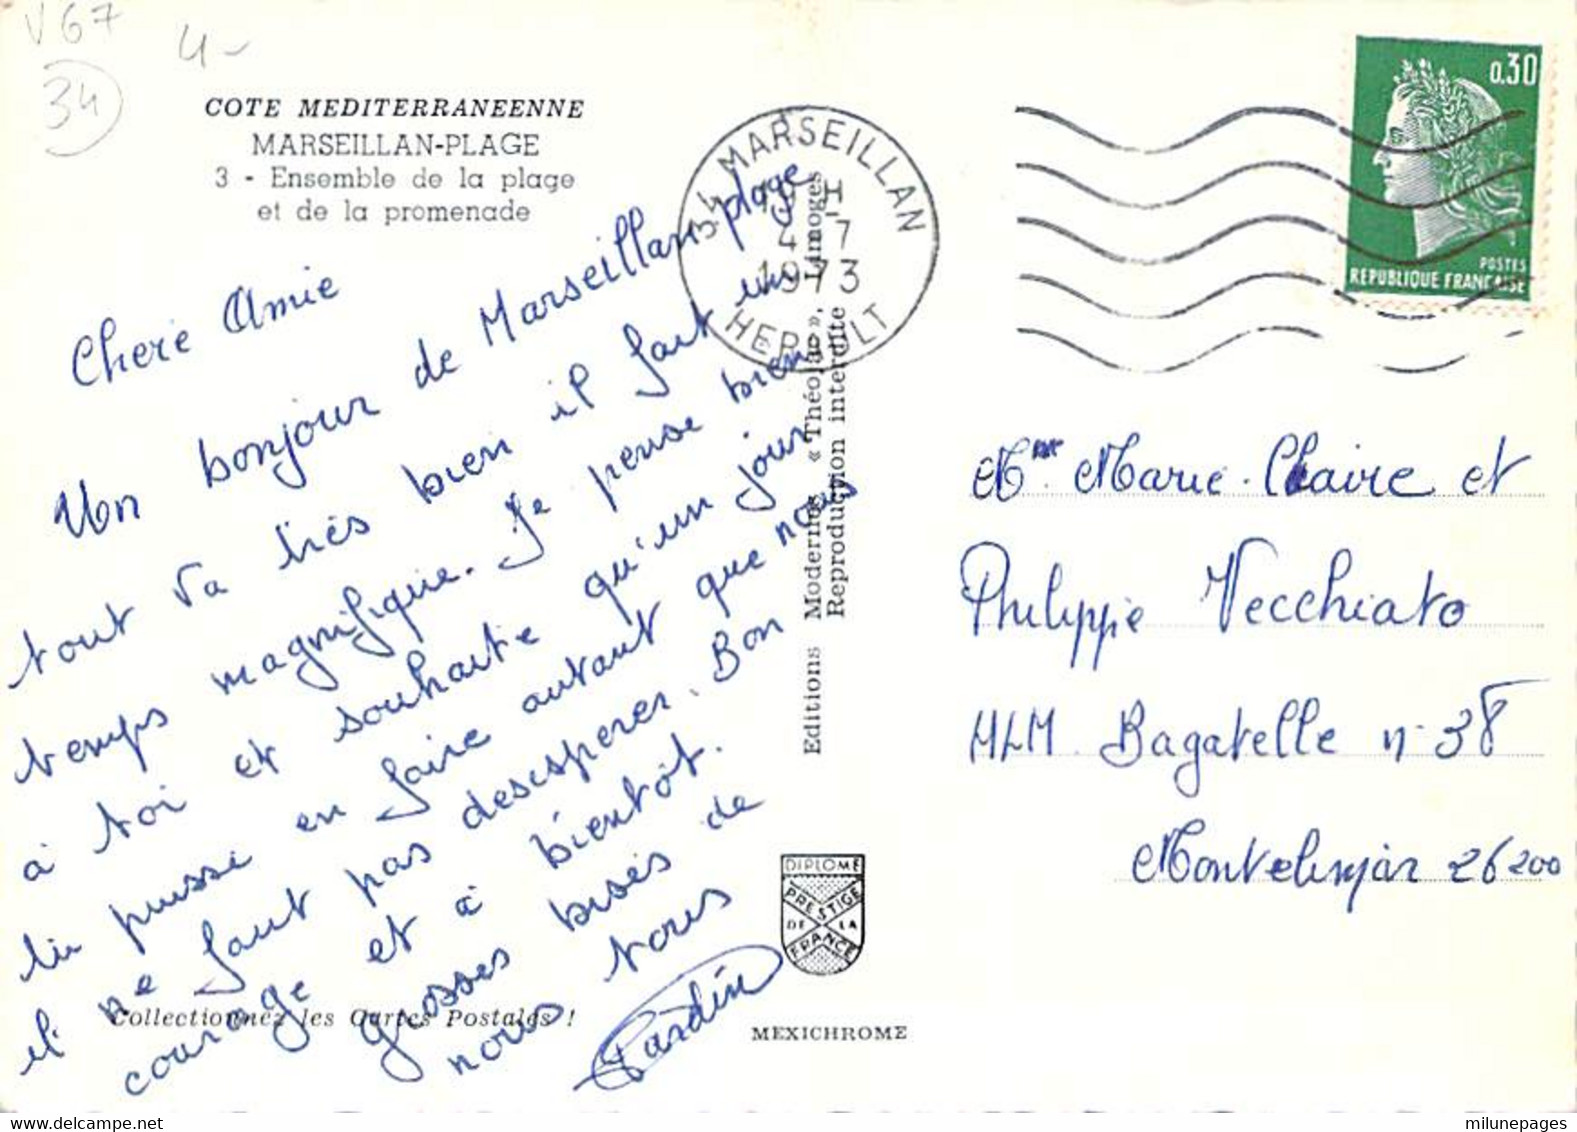 V67
34
4-
COTE MEDITERRANEENNE
MARSEILLAN-PLAGE
3 - Ensemble de la plage
et de la promenade
Chere Amie
Un bonjour de Marseillan plage
tout va très bien il fait un
temps magnifique. Je pense bien
à toi et souhaite qu'un jour
tu puisse en faire autant que nous
il ne faut pas desesperer. Bon
courage et à bientôt.
grosses bises de
nous tous
Collectionnez les Cartes Postales !
34 MARSEILLAN
19 H
4-7
1973
HERAULT
Editions Modernes « Théojac », Limoges
Reproduction interdite
DIPLOME
PRESTIGE
DE LA
FRANCE
MEXICHROME
0.30
POSTES
REPUBLIQUE FRANÇAISE
Mme Marie-Claire et
Philippe Vecchiato
HLM Bagatelle n° 38
Montelimar 26200
milunepages